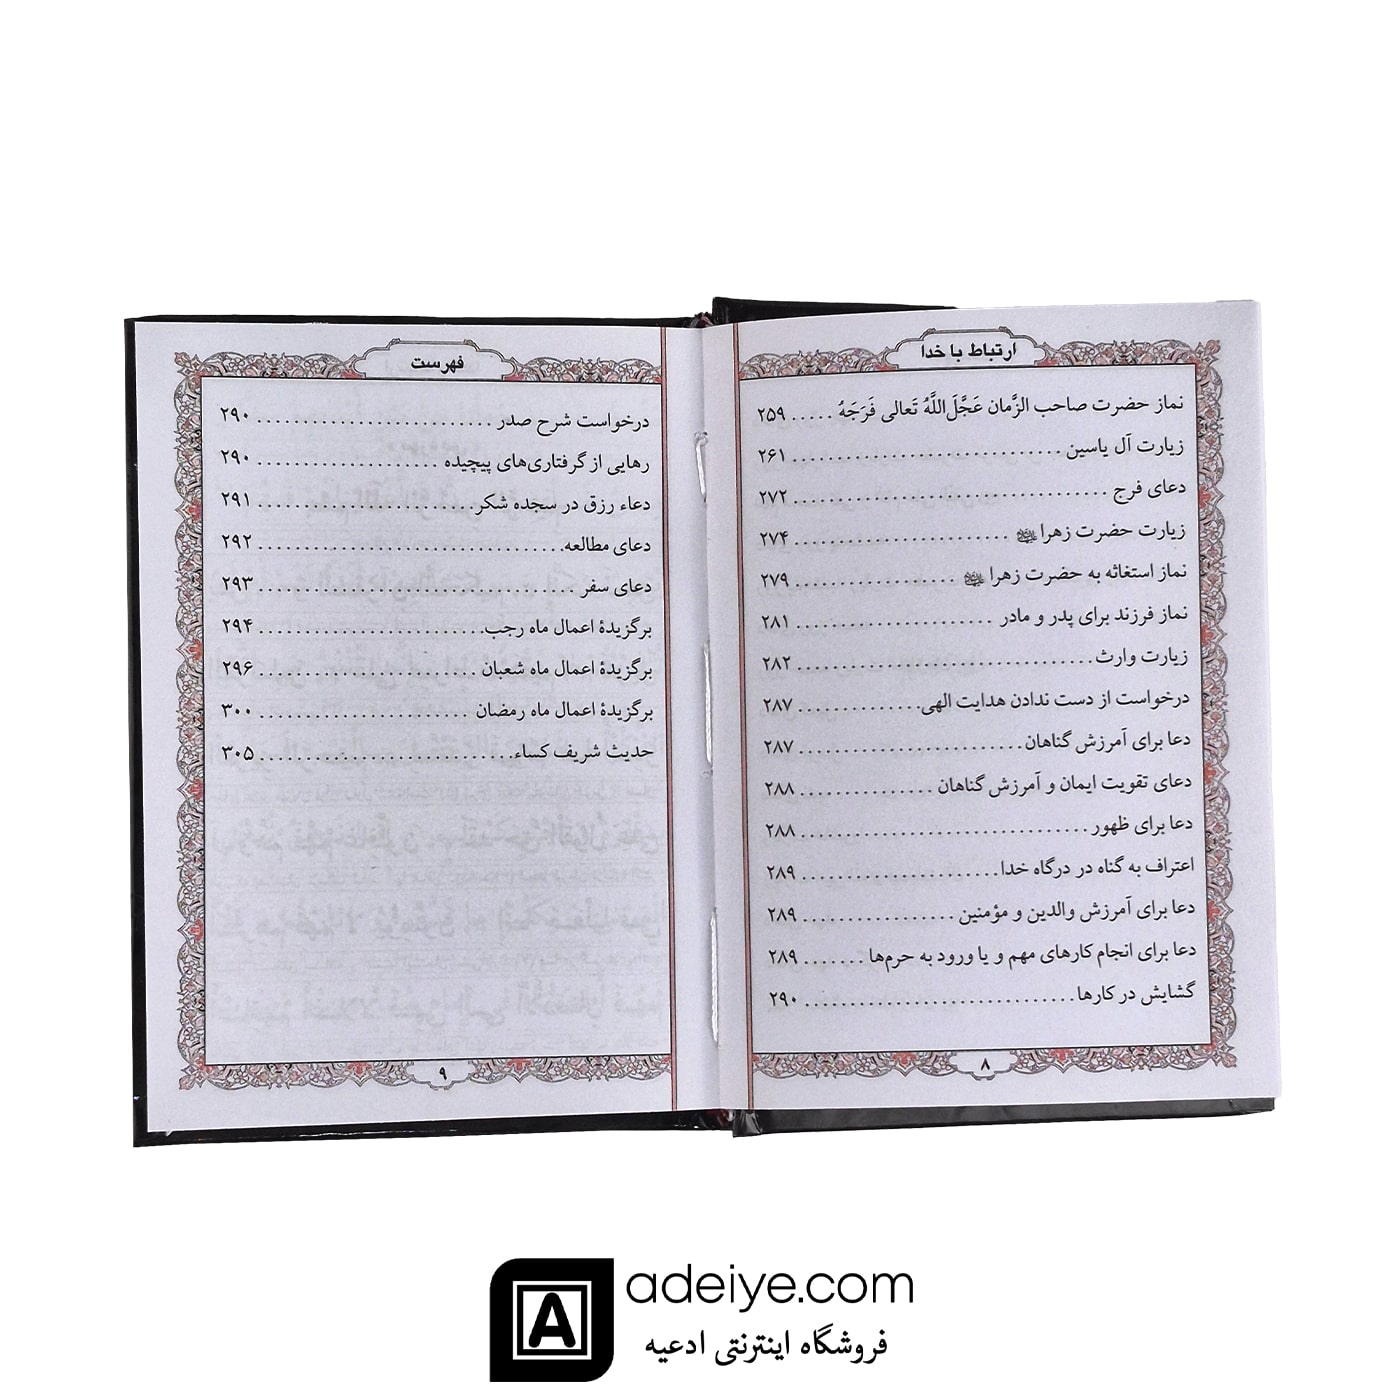 ارتباط با خدا
نماز حضرت صاحب الزَّمان عَجَّلَ اللَّهُ تَعالی فَرَجَهُ ..... ۲۵۹
زیارت آل یاسین .............................. ۲۶۱
دعای فرج .................................. ۲۷۲
زیارت حضرت زهرا ........................ ۲۷۴
نماز استغاثه به حضرت زهرا .................. ۲۷۹
نماز فرزند برای پدر و مادر ...................... ۲۸۱
زیارت وارث ................................ ۲۸۲
درخواست از دست ندادن هدایت الهی .............. ۲۸۷
دعا برای آمرزش گناهان ......................... ۲۸۷
دعای تقویت ایمان و آمرزش گناهان ................ ۲۸۸
دعا برای ظهور ................................ ۲۸۸
اعتراف به گناه در درگاه خدا ...................... ۲۸۹
دعا برای آمرزش والدین و مؤمنین ................. ۲۸۹
دعا برای انجام کارهای مهم و یا ورود به حرم‌ها ....... ۲۸۹
گشایش در کارها .............................. ۲۹۰
۸
فهرست
درخواست شرح صدر .......................... ۲۹۰
رهایی از گرفتاری‌های پیچیده .................... ۲۹۰
دعاء رزق در سجده شکر ........................ ۲۹۱
دعای مطالعه ................................. ۲۹۲
دعای سفر ................................... ۲۹۳
برگزیدهٔ اعمال ماه رجب ......................... ۲۹۴
برگزیدهٔ اعمال ماه شعبان ........................ ۲۹۶
برگزیدهٔ اعمال ماه رمضان ....................... ۳۰۰
حدیث شریف کساء ............................ ۳۰۵
۹
A
adeiye.com
فروشگاه اینترنتی ادعیه